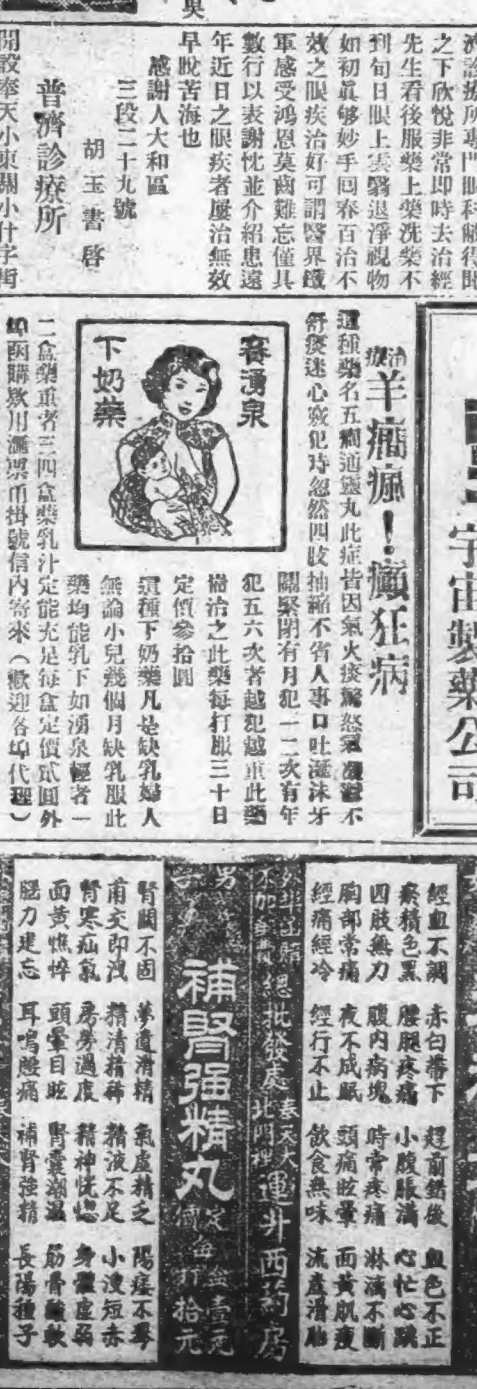 濟診療所專門眼科鄙得聞
之下欣悅非常即時去治經
先生看後服藥上藥洗藥不
到旬日眼上雲翳退淨視物
如初真够妙手回春百治不
效之眼疾治好可謂醫界鐵
軍感受鴻恩莫齒難忘僅具
數行以表謝忱並介紹患遠
年近日之眼疾者屢治無效
早脫苦海也
感謝人大和區
三段二十九號
胡玉書啓
普濟診療所
開設奉天小東關小什字街
宇宙製藥公司
治療羊癇瘋！癲狂病
這種藥名五癇通靈丸此症皆因氣火痰驚怒
舒痰迷心竅犯時忽然四肢抽縮不省人事口吐涎沫牙
關緊閉有月犯一二次有年
犯五六次者越犯越重此藥
能治之此藥每打服三十日
定價參拾圓
賽湧泉
下奶藥
這種下奶藥凡是缺乳婦人
無論小兒幾個月缺乳服此
藥均能乳下如湧泉輕者一
二盒藥重者三四盒藥乳汁定能充足每盒定價貳圓外
埠函購欵用滙票由掛號信內寄來（歡迎各埠代理）
經血不調　赤白帶下　趕前錯後　血色不正
瘀積色黑　腰腿疼痛　小腹脹滿　心忙心跳
四肢無力　腹內病塊　時常疼痛　淋漓不斷
胸部常痛　夜不成眠　頭痛眩暈　面黃肌瘦
經痛經冷　經行不止　飲食無味　流產滑胎
總批發處　奉天大北門裡　運升西藥房
補腎強精丸
定價每盒壹元
每打拾元
腎關不固　夢遺滑精　氣虛精乏　陽痿不舉
甫交即洩　精清精稀　精液不足　小溲短赤
腎寒疝氣　房勞過度　精神恍惚　身體虛弱
面黃憔悴　頭暈目眩　腎囊潮濕　筋骨酸軟
腦力健忘　耳鳴腰痛　補腎強精　長陽種子